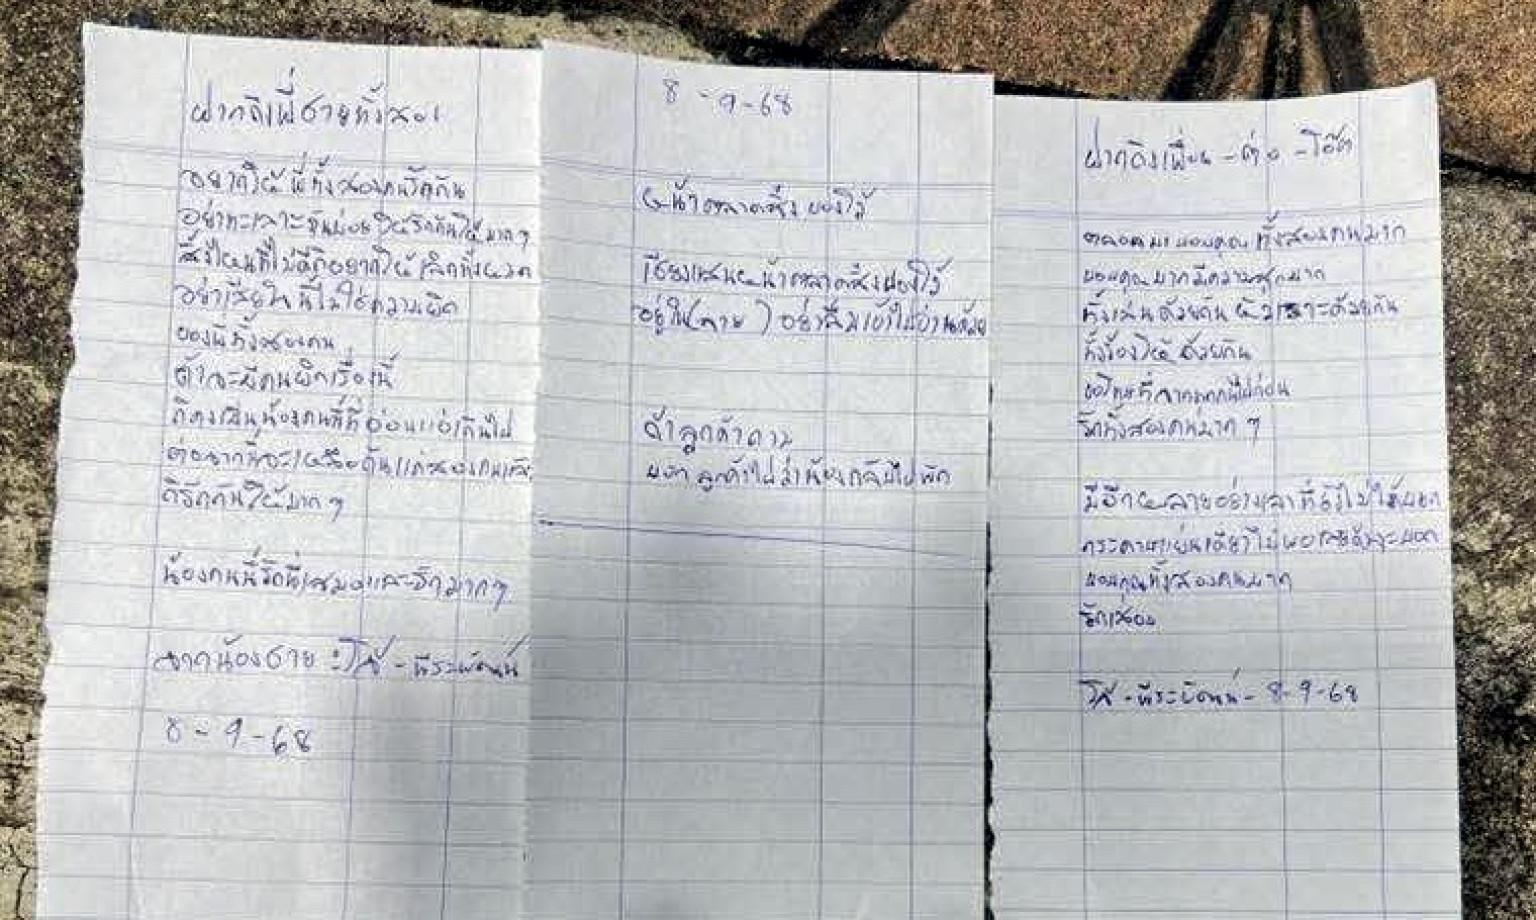 ฝากถึงพี่ชายทั้งสอง
อยากให้พี่ทั้งสองคนรักกัน
อย่าทะเลาะกันบ่อย ให้รักกันให้มากๆ
สิ่งไหนที่ไม่ดีก็อยากให้เลิกทั้งหมด
อย่าเสียใจ นี่ไม่ใช่ความผิด
ของพี่ทั้งสองคน
ถ้าจะมีคนผิดเรื่องนี้
ก็คงเป็นน้องคนนี้ที่อ่อนแอเกินไป
ต่อจากนี้จะเหลือกันแค่สองคนแล้ว
ก็รักกันให้มากๆ
น้องคนนี้รักพี่เสมอและรักมากๆ
จากน้องชาย : โส่ - พีระพัฒน์
8 - 9 - 68
8 - 9 - 68
หน้าตลาดสิ่งของไว้
เขียงแสนหน้าตลาดสิ่งของไว้
อยู่ใน( ) อย่าลืมเข้าไปอ่านด้วย
ถ้าลูกค้าถาม
บอกลูกค้าไปว่าน้องกลับไปพัก
ฝากถึงเพื่อน - ต่อ - โอ๊ต
ตลอดมาขอบคุณทั้งสองคนมาก
ขอบคุณมากมีความสุขมาก
ทั้งเล่นด้วยกัน หัวเราะด้วยกัน
ทั้งร้องไห้ด้วยกัน
ขอโทษที่จากทุกคนไปก่อน
รักทั้งสองคนมากๆ
มีอีกหลายอย่างเลยที่ยังไม่ได้บอก
กระดาษแผ่นเดียวไม่พอเลยถ้าจะบอก
ขอบคุณทั้งสองคนมาก
รักเสมอ
โส่ - พีระพัฒน์ - 8-9-68